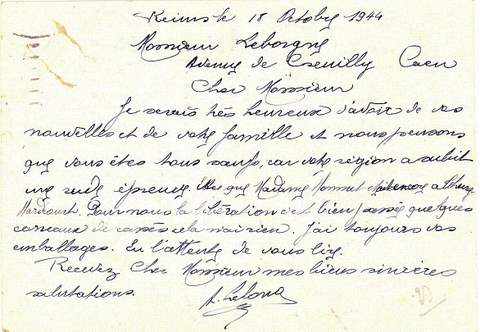 Reims le 18 Octobre 1944
Monsieur Leborgny
Avenue de Creuilly Caen
Cher Monsieur
Je serais très heureux d'avoir de vos
nouvelles et de votre famille et nous pensons
que vous êtes tous saufs, car votre région a subit
une rude épreuve. que Madame à
Harcourt. Pour nous la libération c'est bien passée quelques
carreaux de cassés cela n'ai rien. J'ai toujours vos
emballages. En l'attente de vous lire,
Recevez Cher Monsieur mes bien sincères
salutations.